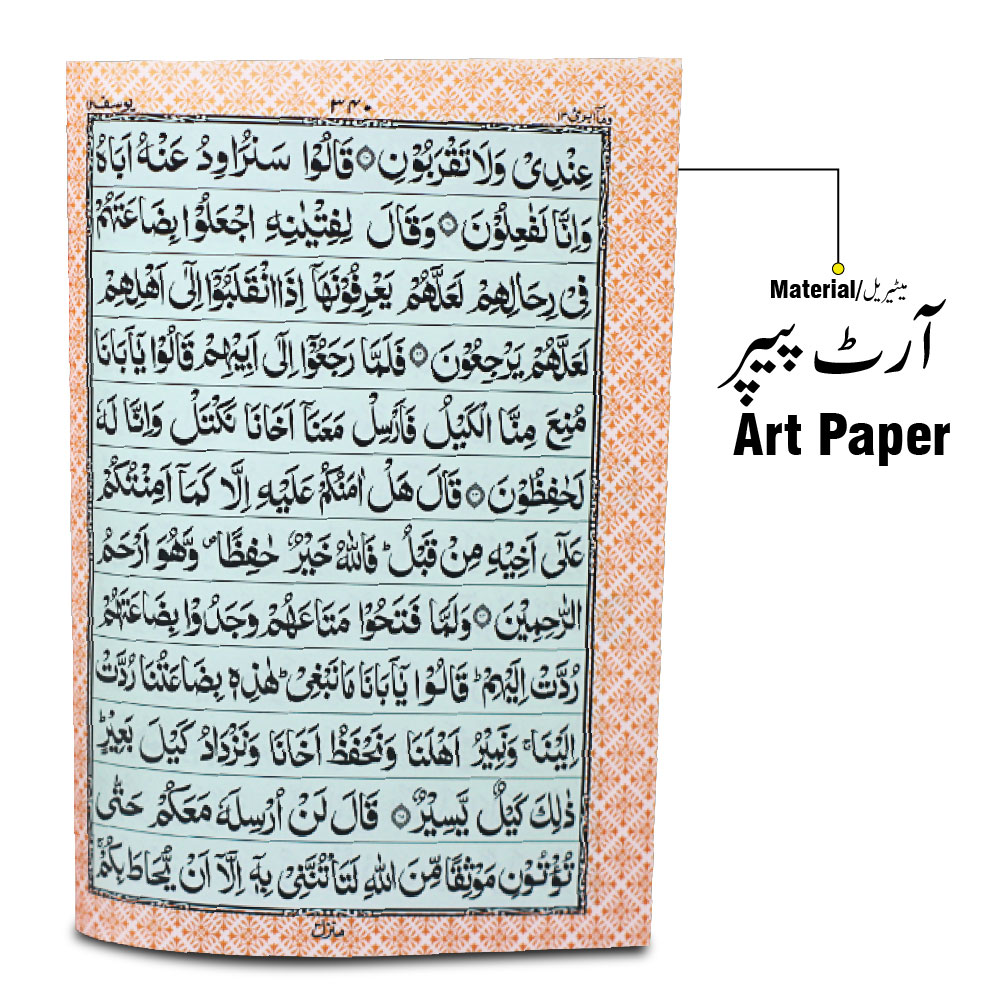 یوسف ۱۲
۳۴۰
وما ابرئ ۱۳
عِنْدِیْ وَلَا تَقْرَبُوْنِ ۝ قَالُوْا سَنُرَاوِدُ عَنْهُ اَبَاهُ
وَاِنَّا لَفٰعِلُوْنَ ۝ وَقَالَ لِفِتْیٰنِهِ اجْعَلُوْا بِضَاعَتَهُمْ
فِیْ رِحَالِهِمْ لَعَلَّهُمْ یَعْرِفُوْنَهَاۤ اِذَا انْقَلَبُوْۤا اِلٰۤی اَهْلِهِمْ
لَعَلَّهُمْ یَرْجِعُوْنَ ۝ فَلَمَّا رَجَعُوْۤا اِلٰۤی اَبِیْهِمْ قَالُوْا یٰۤاَبَانَا
مُنِعَ مِنَّا الْكَیْلُ فَاَرْسِلْ مَعَنَاۤ اَخَانَا نَكْتَلْ وَاِنَّا لَهٗ
لَحٰفِظُوْنَ ۝ قَالَ هَلْ اٰمَنُكُمْ عَلَیْهِ اِلَّا كَمَاۤ اَمِنْتُكُمْ
عَلٰۤی اَخِیْهِ مِنْ قَبْلُ ؕ فَاللّٰهُ خَیْرٌ حٰفِظًا ۪ وَّهُوَ اَرْحَمُ
الرّٰحِمِیْنَ ۝ وَلَمَّا فَتَحُوْا مَتَاعَهُمْ وَجَدُوْا بِضَاعَتَهُمْ
رُدَّتْ اِلَیْهِمْ ؕ قَالُوْا یٰۤاَبَانَا مَا نَبْغِیْ ؕ هٰذِهٖ بِضَاعَتُنَا رُدَّتْ
اِلَیْنَا ۚ وَنَمِیْرُ اَهْلَنَا وَنَحْفَظُ اَخَانَا وَنَزْدَادُ كَیْلَ بَعِیْرٍ ؕ
ذٰلِكَ كَیْلٌ یَّسِیْرٌ ۝ قَالَ لَنْ اُرْسِلَهٗ مَعَكُمْ حَتّٰی
تُؤْتُوْنِ مَوْثِقًا مِّنَ اللّٰهِ لَتَاْتُنَّنِیْ بِهٖۤ اِلَّاۤ اَنْ یُّحَاطَ بِكُمْ ۚ
منزل
Material/میٹیریل
آرٹ پیپر
Art Paper